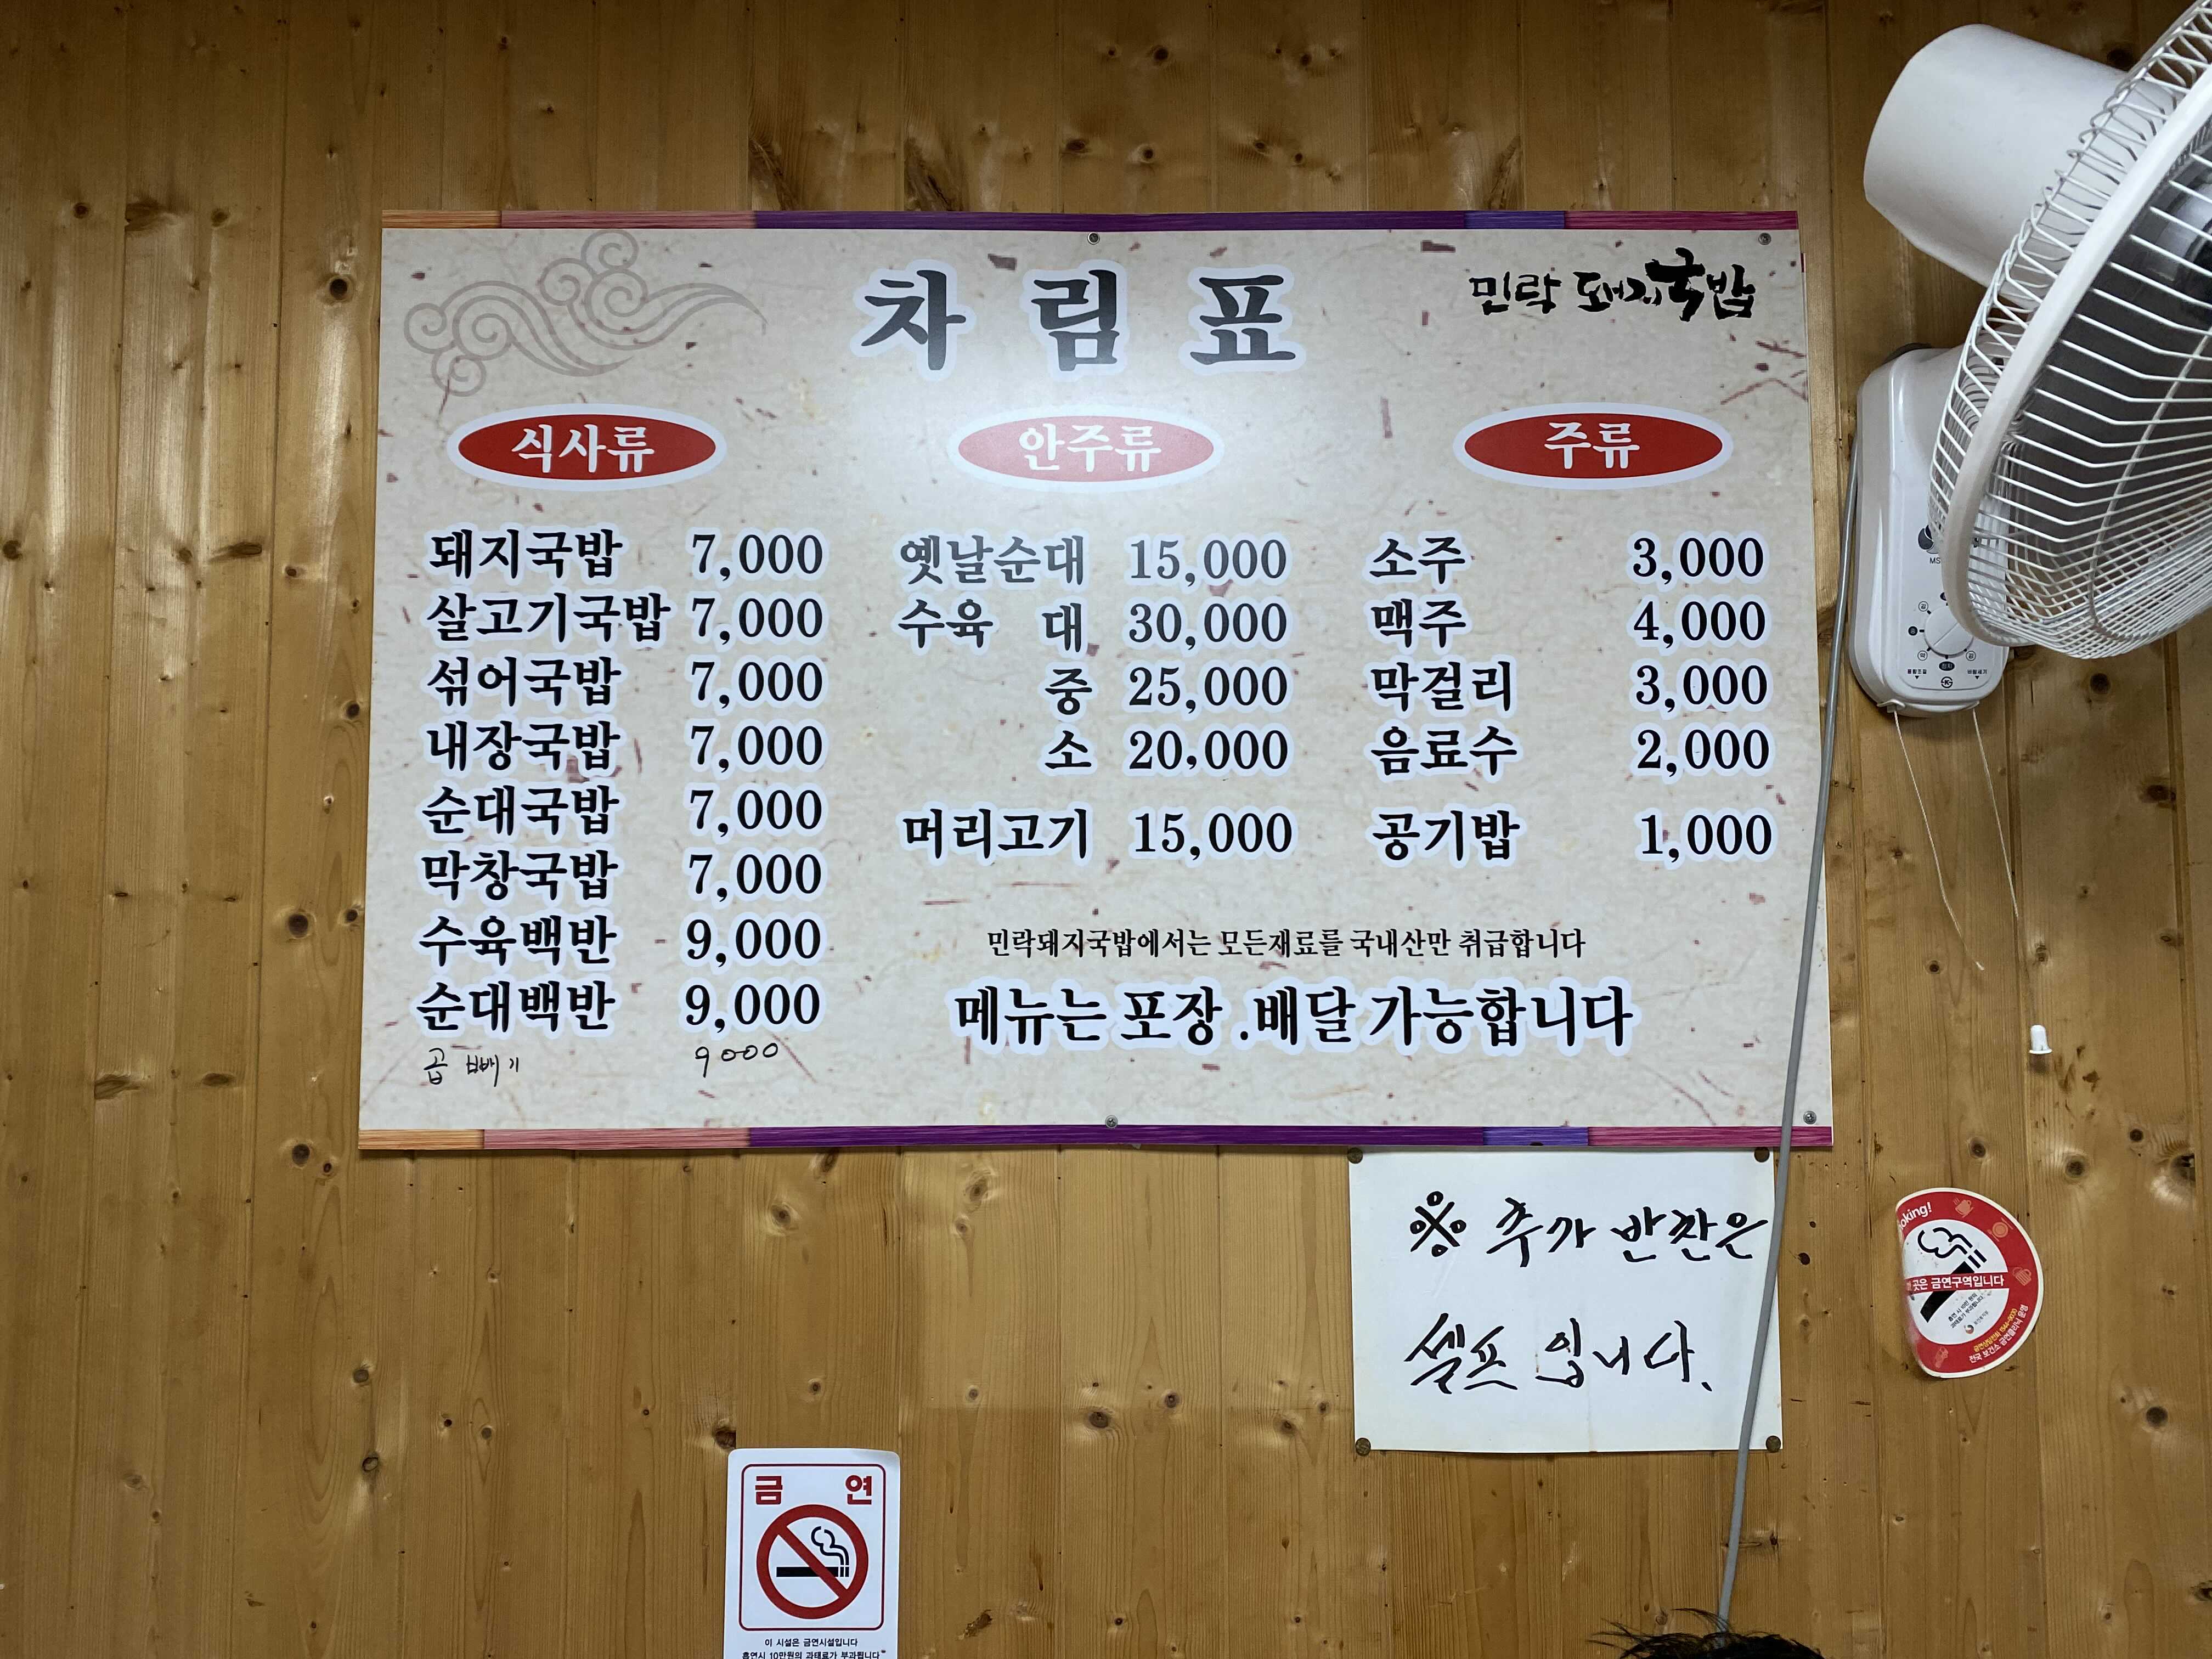 차림표
민락 돼지국밥
식사류
돼지국밥 7,000
살고기국밥 7,000
섞어국밥 7,000
내장국밥 7,000
순대국밥 7,000
막창국밥 7,000
수육백반 9,000
순대백반 9,000
곱빼기 9000
안주류
옛날순대 15,000
수육 대 30,000
중 25,000
소 20,000
머리고기 15,000
주류
소주 3,000
맥주 4,000
막걸리 3,000
음료수 2,000
공기밥 1,000
민락돼지국밥에서는 모든재료를 국내산만 취급합니다
메뉴는 포장.배달 가능합니다
※ 추가 반찬은
셀프 입니다.
금연
이 시설은 금연시설입니다
흡연시 10만원의 과태료가 부과됩니다
oking!
곳은 금연구역입니다